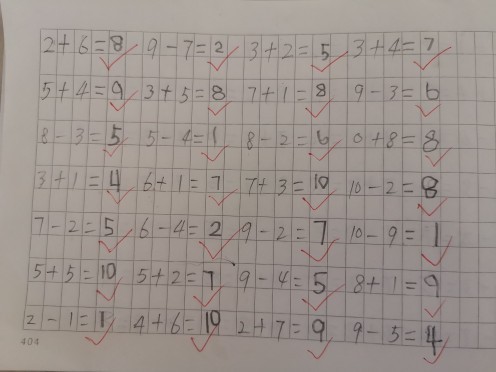 2+6=8 9-7=2 3+2=5 3+4=7
5+4=9 3+5=8 7+1=8 9-3=6
8-3=5 5-4=1 8-2=6 0+8=8
3+1=4 6+1=7 7+3=10 10-2=8
7-2=5 6-4=2 9-2=7 10-9=1
5+5=10 5+2=7 9-4=5 8+1=9
2-1=1 4+6=10 2+7=9 9-5=4
404